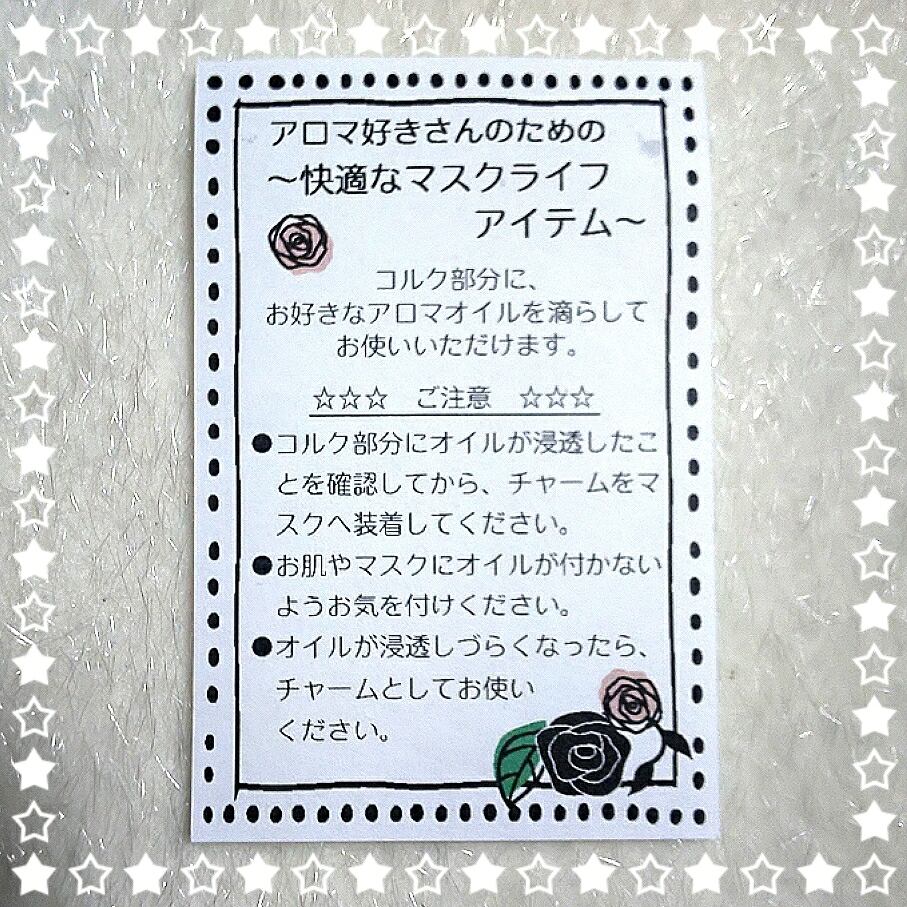 アロマ好きさんのための
～快適なマスクライフ
アイテム～
コルク部分に、
お好きなアロマオイルを滴らして
お使いいただけます。
☆☆☆　ご注意　☆☆☆
●コルク部分にオイルが浸透したこ
とを確認してから、チャームをマ
スクへ装着してください。
●お肌やマスクにオイルが付かない
ようお気を付けください。
●オイルが浸透しづらくなったら、
チャームとしてお使い
ください。